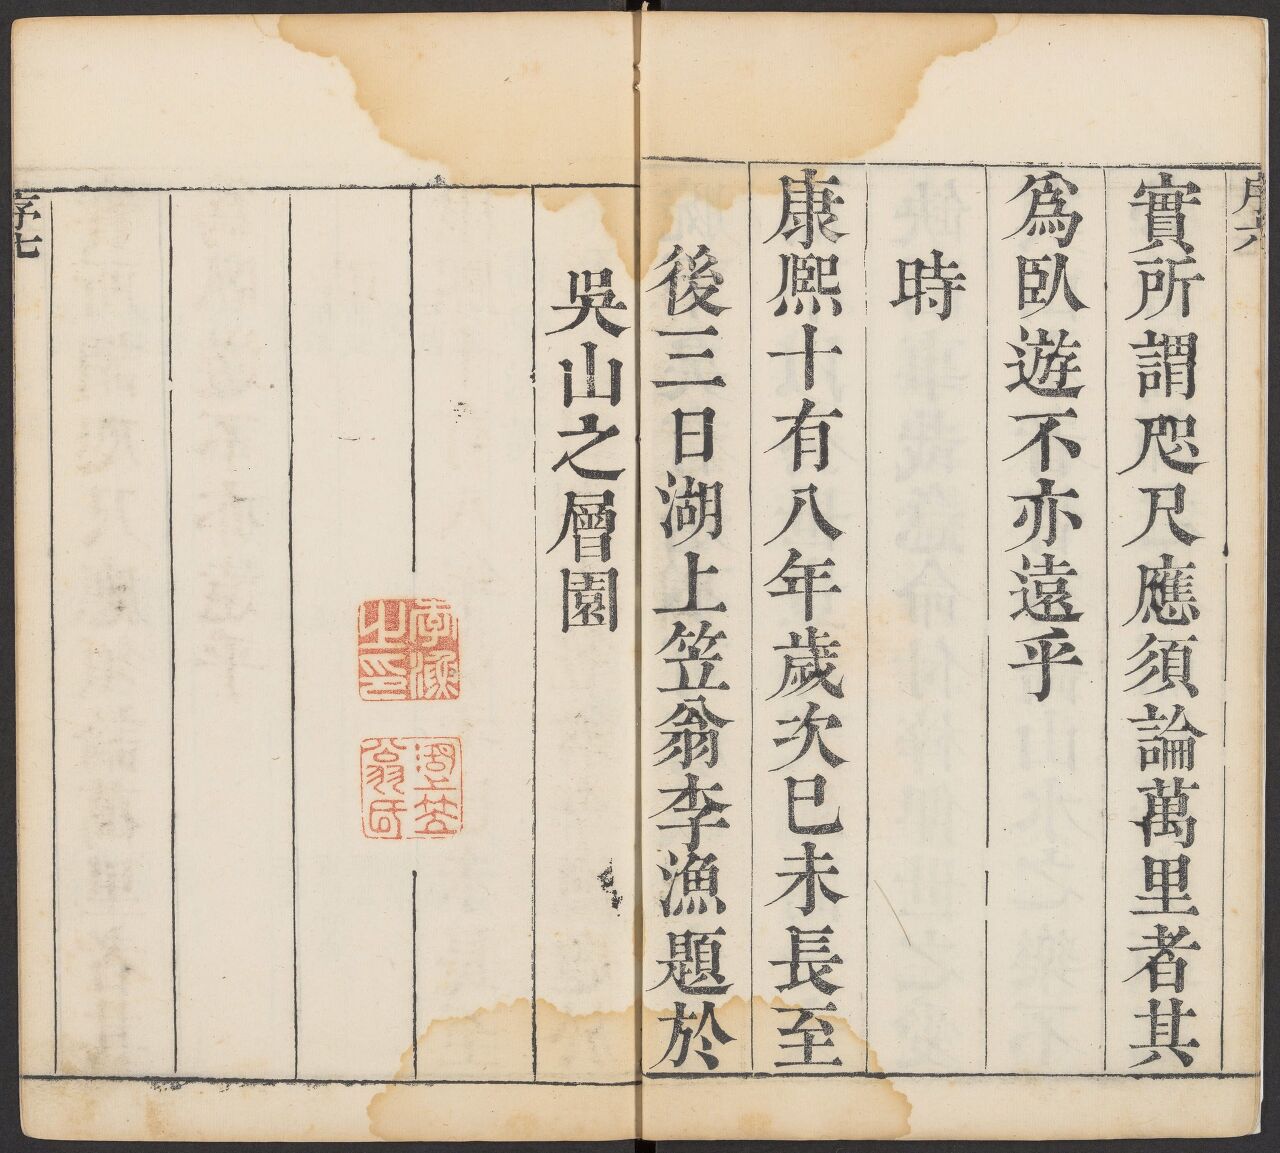 序六
實所謂咫尺應須論萬里者其
爲臥遊不亦遠乎
時
康熙十有八年歲次巳未長至
後三日湖上笠翁李漁題於
吳山之層園
李漁
之印
湖上笠
翁氏
序七